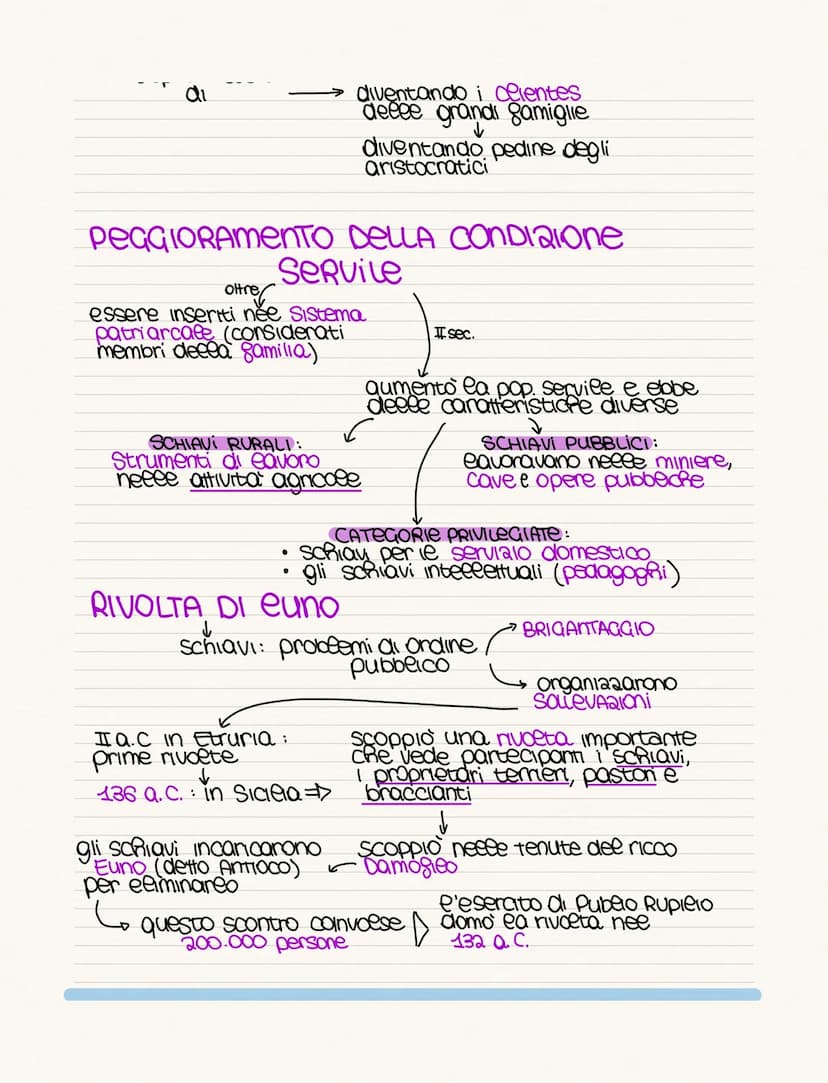 di → diventando i clientes
delle grandi famiglie
↓
diventando pedine degli
aristocratici
PEGGIORAMENTO DELLA CONDIZIONE
SERVILE
oltre
essere inseriti nel sistema
patriarcale (considerati
membri della familia)
II sec.
aumentò la pop. servile e ebbe
delle caratteristiche diverse
SCHIAVI RURALI:
strumenti di lavoro
nelle attività agricole
SCHIAVI PUBBLICI:
lavoravano nelle miniere,
cave e opere pubbliche
CATEGORIE PRIVILEGIATE:
• schiavi per il servizio domestico
• gli schiavi intellettuali (pedagoghi)
RIVOLTA DI EUNO
↓
schiavi: problemi di ordine
pubblico
→ BRIGANTAGGIO
→ organizzarono
SOLLEVAZIONI
II a.C in Etruria:
prime rivolte
↓
136 a.C. : in Sicilia ⇒
scoppiò una rivolta importante
che vede partecipanti i schiavi,
i proprietari terrieri, pastori e
braccianti
↓
scoppiò nelle tenute del ricco
Damofilo
gli schiavi incaricarono
Euno (detto Antioco)
per eliminarlo
↳ questo scontro coinvolse
200.000 persone
l'esercito di Publio Rupilio
domò la rivolta nel
132 a.C.